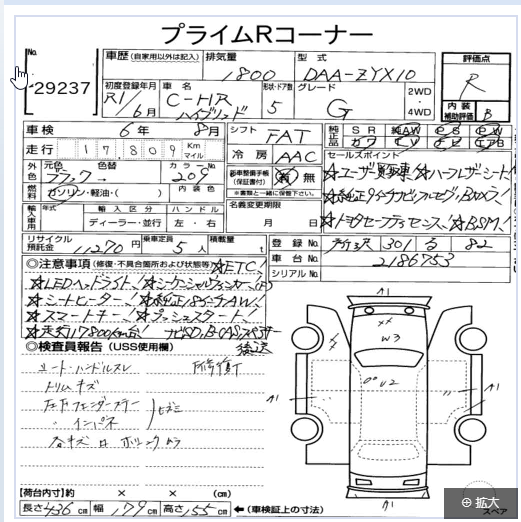 プライムRコーナー
No.
29237
車歴 (自家用以外は記入)
排気量
1800
型式
DAA-ZYX10
評価点
R
内装補助評価
B
初度登録年月
R1/6月
車名
C-HR
ハイブリッド
形状・ドア数
5
グレード
G
2WD・4WD
車検 6年 8月
シフト FAT
純正品 SR 純AW PS PW
カワ TV ナビ エアB
走行 17809 Km マイル
冷房 AAC
セールスポイント
☆ユーザー買取車!☆ハーフレザーシート
外色 元色 色替 カラーNo.
ブラック 209
新車整備手帳(保証書付) 有 無
※書類と一緒に保管下さい。
☆純正9インチナビ フルセグ/BMカメラ!
燃料 ガソリン・軽油・( ) 内装色
名義変更期限
月 日
☆トヨタセーフティセンス、☆BSM!
輸入車用 年式 輸入区分 ハンドル
ディーラー・並行 左・右
リサイクル預託金 11,270円
乗車定員 5人
積載量 t
登録No. 301 82
車台No. 2186753
シリアルNo.
◎注意事項 (修復・不具合箇所および状態等) ☆ETC!
☆LEDヘッドライト!☆シーケンシャルウィンカー
☆シートヒーター!☆純正18インチAW!
☆スマートキー!☆プッシュスタート!
☆走行17800km台!
後送
◎検査員報告 (USS使用欄)
シート・ハンドルスレ
トリムキズ
インパネ
A1
××
W3
U2
A1
A1
A1
【荷台内寸】約 × × (cm)
長さ 436 cm 幅 179 cm 高さ 155 cm ←(車検証上の寸法)
スペア
拡大